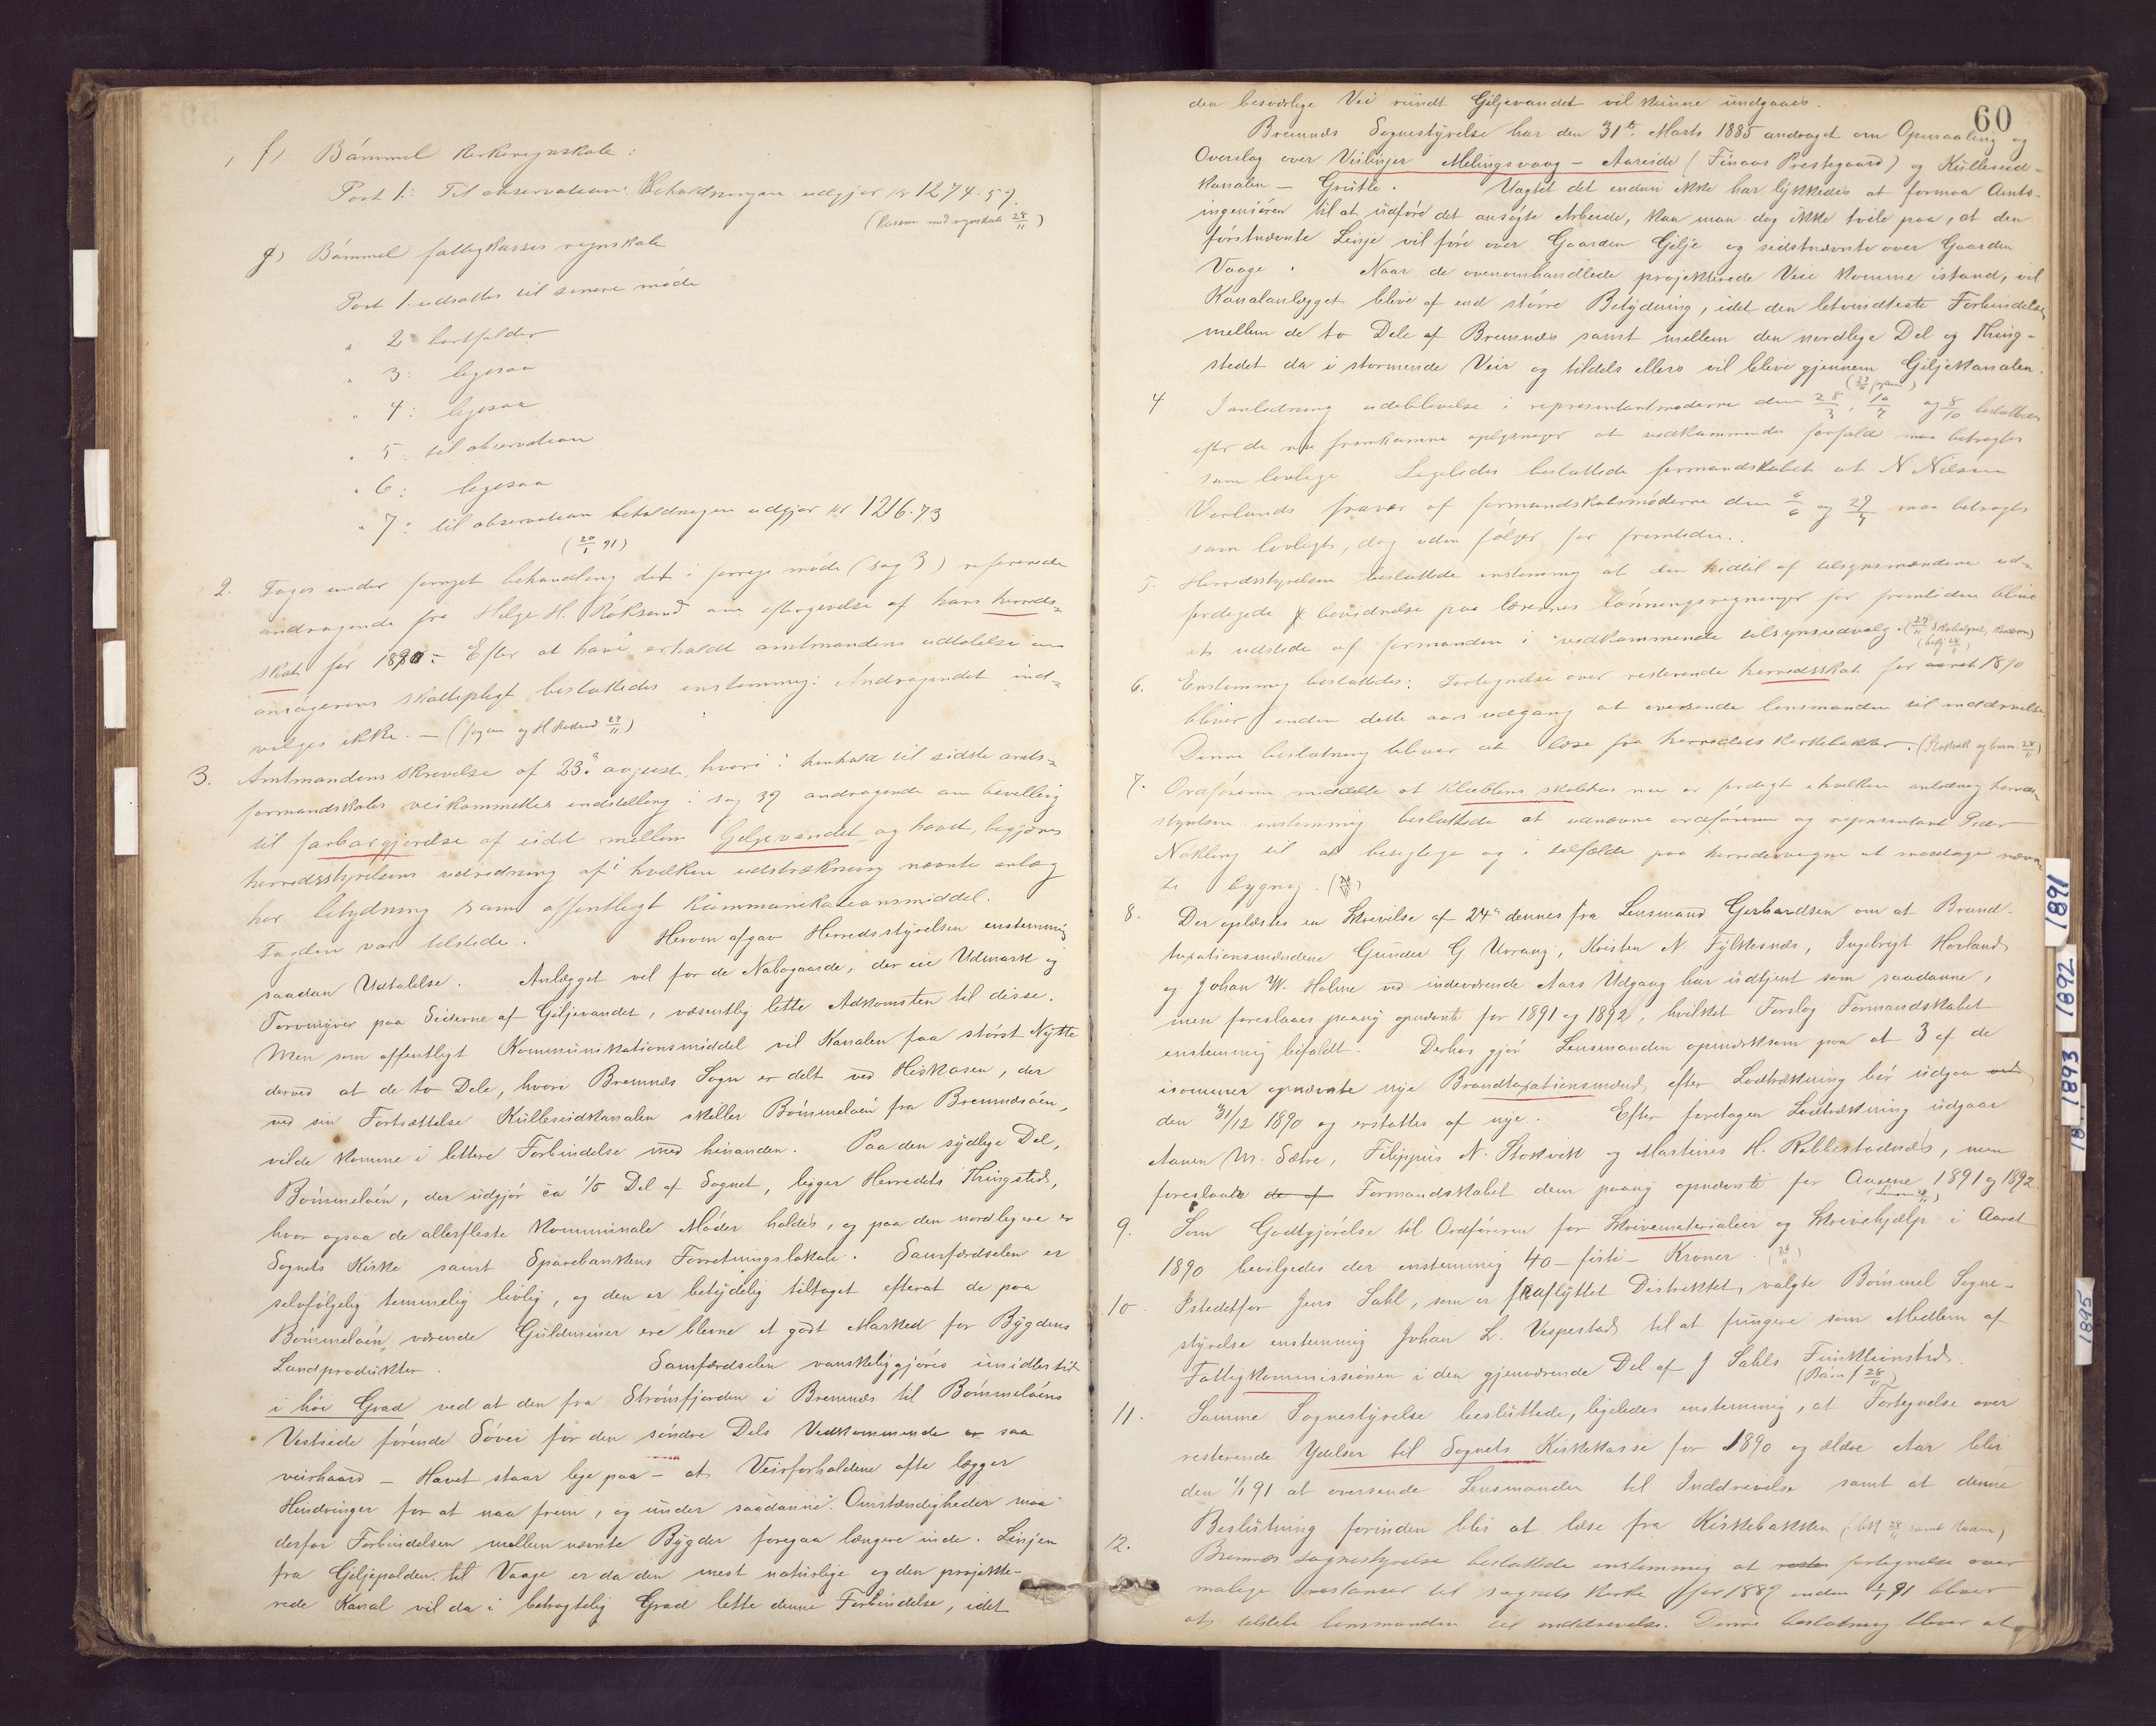 f) Bømmel kirkeregnskab:
Post 1: Til observation. Beholdningen udgjør kr 1274.59.
(Kasserer med regnskab 28/11)
g) Bømmel fattigkasses regnskab
Post 1. udsattes til senere møde
" 2 bortfalder
" 3: ligesaa
" 4: ligesaa
" 5: til observation
" 6: ligesaa
" 7: til observation beholdningen udgjør kr 1216.73
(20/1 91)
2. Toges under fornyet behandling det i forrige møde (sag 3) refererede
andragende fra Helge H. Røksund om eftergivelse af hans herreds-
skat for 1890. Efter at have erholdt amtmandens udtalelse om
ansøgerens skattepligt besluttedes enstemmig: Andragendet ind-
vilges ikke. — (fogden og H Røksund 29/11)
3. Amtmandens skrivelse af 23de august, hvori i henhold til sidste amts-
formandskabs veikommittes indstilling i sag 39 andragende om bevilling
til farbargjørelse af eidet mellem Giljevandet og havet, begjæres
herredsstyrelsens udredning af i hvilken udstrækning nævnte anlæg
har betydning som offentligt kommunikationsmiddel.
Fogden var tilstede. Herom afgav Herredsstyrelsen enstemmig
saadan Udtalelse. Anlægget vil for de Nabogaarde, der eie Udmark og
Torvmyrer paa Siderne af Giljevandet, væsentlig lette Adkomsten til disse.
Men som offentligt Kommunikationsmiddel vil Kanalen faa størst Nytte
derved at de to Dele, hvori Bremnæs Sogn er delt ved Hiskosen, der
ved sin Fortsættelse Kulleseidkanalen skiller Bømmeløen fra Bremnæsøen,
vilde komme i lettere Forbindelse med hinanden. Paa den sydlige Del,
Bømmeløen, der udgjør ca 1/5 Del af Sognet, ligger Herredets Thingsted,
hvor ogsaa de allerfleste kommunale Møder holdes, og paa den nordligere er
Sognets Kirke samt Sparebankens Forretningslokale. Samfærdselen er
selvfølgelig temmelig livlig, og den er betydelig tiltaget efterat de paa
Bømmeløen værende Guldminer ere blevne et godt Marked for Bygdens
Landprodukter. Samfærdselen vanskeliggjøres imidlertid
i høi Grad ved at den fra Strømsfjorden i Bremnæs til Bømmeløens
Vestside førende Søvei for den søndre Dels Vedkommende er saa
veirhaard — Havet staar lige paa — at Veirforholdene ofte lægger
Hindringer for at naa frem, og under saadanne Omstændigheder maa
derfor Forbindelsen mellem nævnte Bygder foregaa længere inde. Linjen
fra Giljepolden til Vaage er da den mest naturlige og den projekte-
rede Kanal vil da i betragtelig Grad lette denne Forbindelse, idet
60
den besværlige Vei rundt Giljevandet vil kunne undgaaes.
Bremnæs Sognestyrelse har den 31te Marts 1885 andraget om Opmaaling og
Overslag over Veilinjer Melingsvaag — Aareide (Finaas Prestegaard) og Kulleseid-
kanalen — Grutle. Uagtet det endnu ikke har lykkedes at formaa Amts-
ingeniøren til at udføre det ansøgte Arbeide, kan man dog ikke tvile paa, at den
førstnævnte Linje vil føre over Gaarden Gilje og sidstnævnte over Gaarden
Vaage. Naar de ovenomhandlede projekterede Veie komme istand, vil
Kanalanlægget blive af end større Betydning, idet den letvindteste Forbindelse
mellem de to Dele af Bremnæs samt mellem den nordlige Del og Thing-
stedet da i stormende Veir og tildels ellers vil blive gjennem Giljekanalen.
4 I anledning udeblivelse i representantmøderne den 28/3, 10/7 og 8/10 besluttedes
efter de nu fremkomne oplysninger at vedkommendes forfald maa betragtes
som lovlige. Ligeledes besluttede formandskabet at N Nilsen
Vorlands fravær af formandskabsmøderne den 6/6 og 29/7 maa betragtes
som lovligt, dog uden følger for fremtiden.
5. Herredsstyrelsen besluttede enstemmig at den hidtil af tilsynsmændene ud-
færdigede bevidnelse paa lærernes lønningsregninger for fremtiden blive
at udstede af formanden i vedkommende tilsynsudvalg. (29/11 Skolestyret, Kasseren)
6. Enstemmig besluttedes: Fortegnelse over resterende herredsskat for aaret 1890
bliver inden dette aars udgang at oversende lensmanden til inddrivelse.
Denne beslutning bliver at læse fra herredets kirkebakker.
7. Ordføreren meddelte at skolehus nu er færdigt i hvilken anledning herreds-
styrelsen enstemmig besluttede at udnævne ordføreren og representant Peder
Nøkling til at besigtige og i tilfælde paa herredets vegne at modtage nævn-
te bygning.
8. Der oplæstes en Skrivelse af 24de dennes fra Lensmand Gerhardsen om at Brand-
taxationsmændene Gunder G Urrang, Kristen N. Fylkesnæs, Ingebrigt Hovland
og Johan W. Holme ved indeværende Aars Udgang har udtjent som saadanne,
men foreslaaes paany opnævnte for 1891 og 1892, hvilket Forslag Formandskabet
enstemmig bifaldt. Derhos gjør Lensmanden opmærksom paa at 3 af de
isommer opnævnte nye Brandtaxationsmænd efter Lodtrækning bør udgaa
den 31/12 1890 og erstattes af nye. Efter foretagen Lodtrækning udgaar
Aanen M. Sætre, Filippus N. Stokvik og Martinus H. Robbestadnæs, men
foreslaar de af Formandskabet dem paany opnævnte for Aarene 1891 og 1892.
9. Som Godtgjørelse til Ordføreren for Skrivematerialier og Skrivehjælp i Aaret
1890 bevilgedes der enstemmig 40 — firti — Kroner.
10. Istedetfor Jens Sahl, som er fraflyttet Distriktet, valgte Bømmel Sogne-
styrelse enstemmig Johan L. Vespestad til at fungere som Medlem af
Fattigkommissionen i den gjenværende Del af J Sahls Funktionstid.
11. Samme Sognestyrelse besluttede, ligeledes enstemmig, at Fortegnelse over
resterende Ydelser til Sognets Kirkekasse for 1890 og ældre Aar blir
den 1/1 91 at oversende Lensmanden til Inddrivelse samt at denne
Beslutning forinden blir at læse fra Kirkebakken
12. Bremnæs sognestyrelse besluttede enstemmig at fortegnelse over
mulige restanser til sognets kirke for 1889 inden 1/1 91 bliver
at tilstille lensmanden til inddrivelse. Denne beslutning bliver at
1891
1892
1893
1895